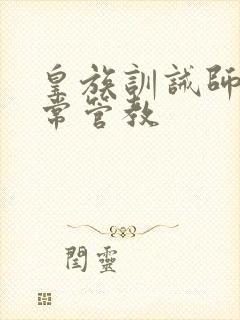 皇族訓誡師
常管教
閏靈